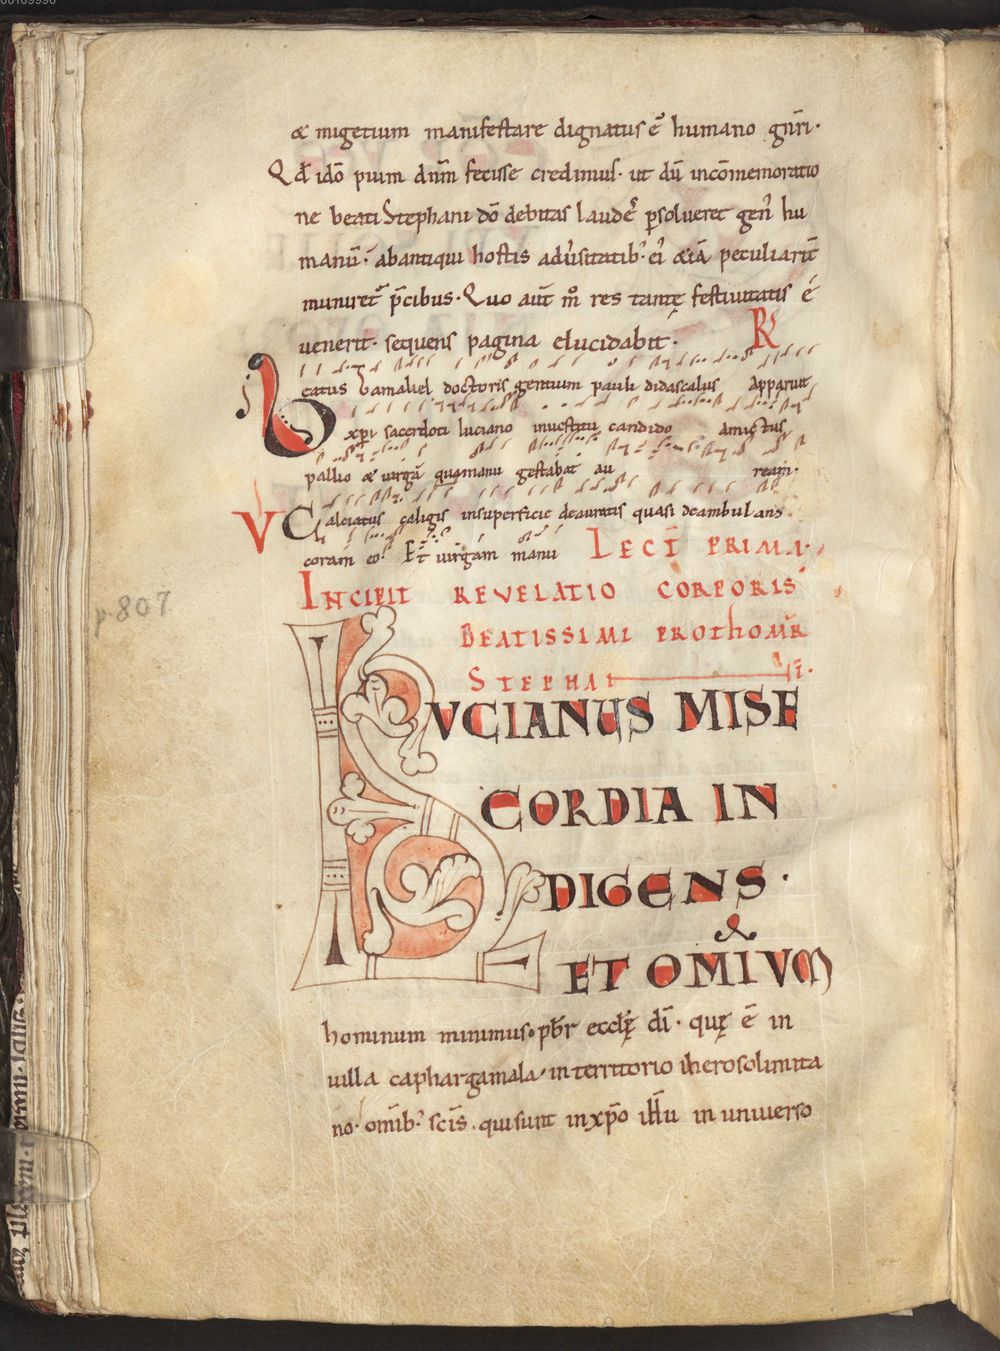 & migetium manifestare dignatus ē humano gn̄ri·
Qđ idō pium dn̄m fecisse credimus· ut dū incōmemoratio
ne beati Stephani dō debitas laudes p̱solueret gen' hu
manū· abantiqui hostis aduersitatib; ei' &iā peculiarit̄
muniret' p̄cibus· Quo aut̄ m̊ res tantę festiuitatis é
uenerit· sequens pagina elucidabit· R
Beatus Gamaliel doctoris gentium pauli didascalus Apparuit
xp̄i sacerdoti luciano inuestitu candido amictus
pallio & uirgā quamanu gestabat au ream·
V Calciatus caligis insuperficie deauratis quasi deambulans
coram eo· Et uirgam manu LECT̄ PRIMA·
INCIPIT REVELATIO CORPORIS
BEATISSIMI PROTHOMR̄
STEPHANI·
LVCIANUS MISE
CORDIA IN
DIGENS·
ET OMIVM
hominum minimus· pb̄r ecclę dī· quę ē in
uilla caphargamala· in territorio iherosolimita
no· omīb; scīs· qui sunt in xp̄o ihū in uniuerso
p. 807